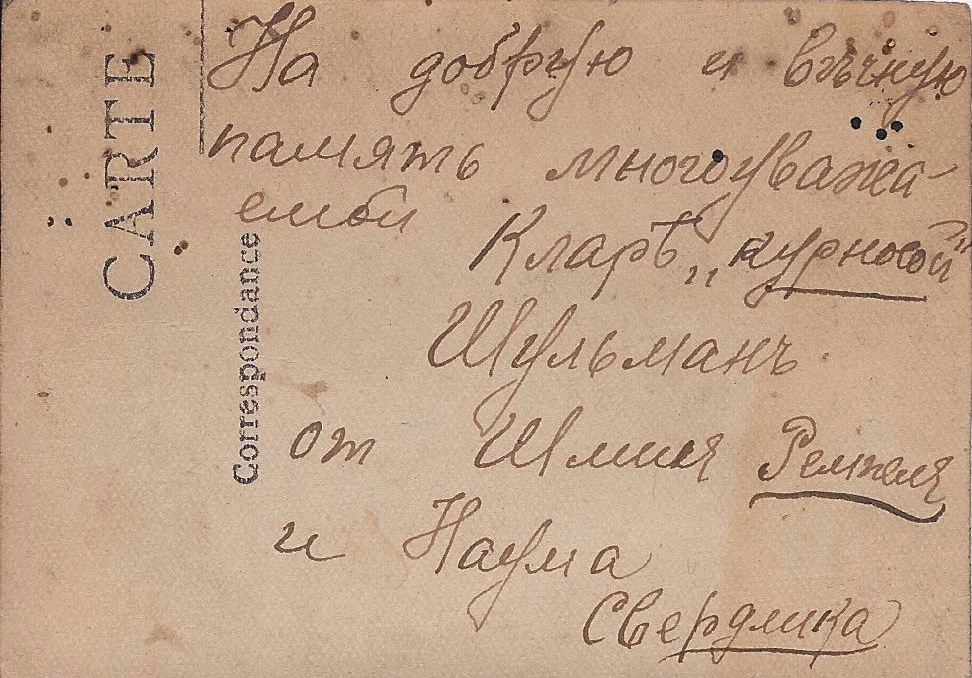 CARTE
Correspondance
На добрую и вѣчную
память многоуважа-
емой
Кларѣ „курносой"
Шульманъ
от ШмиляРемпеля
и Наума
Свердлика